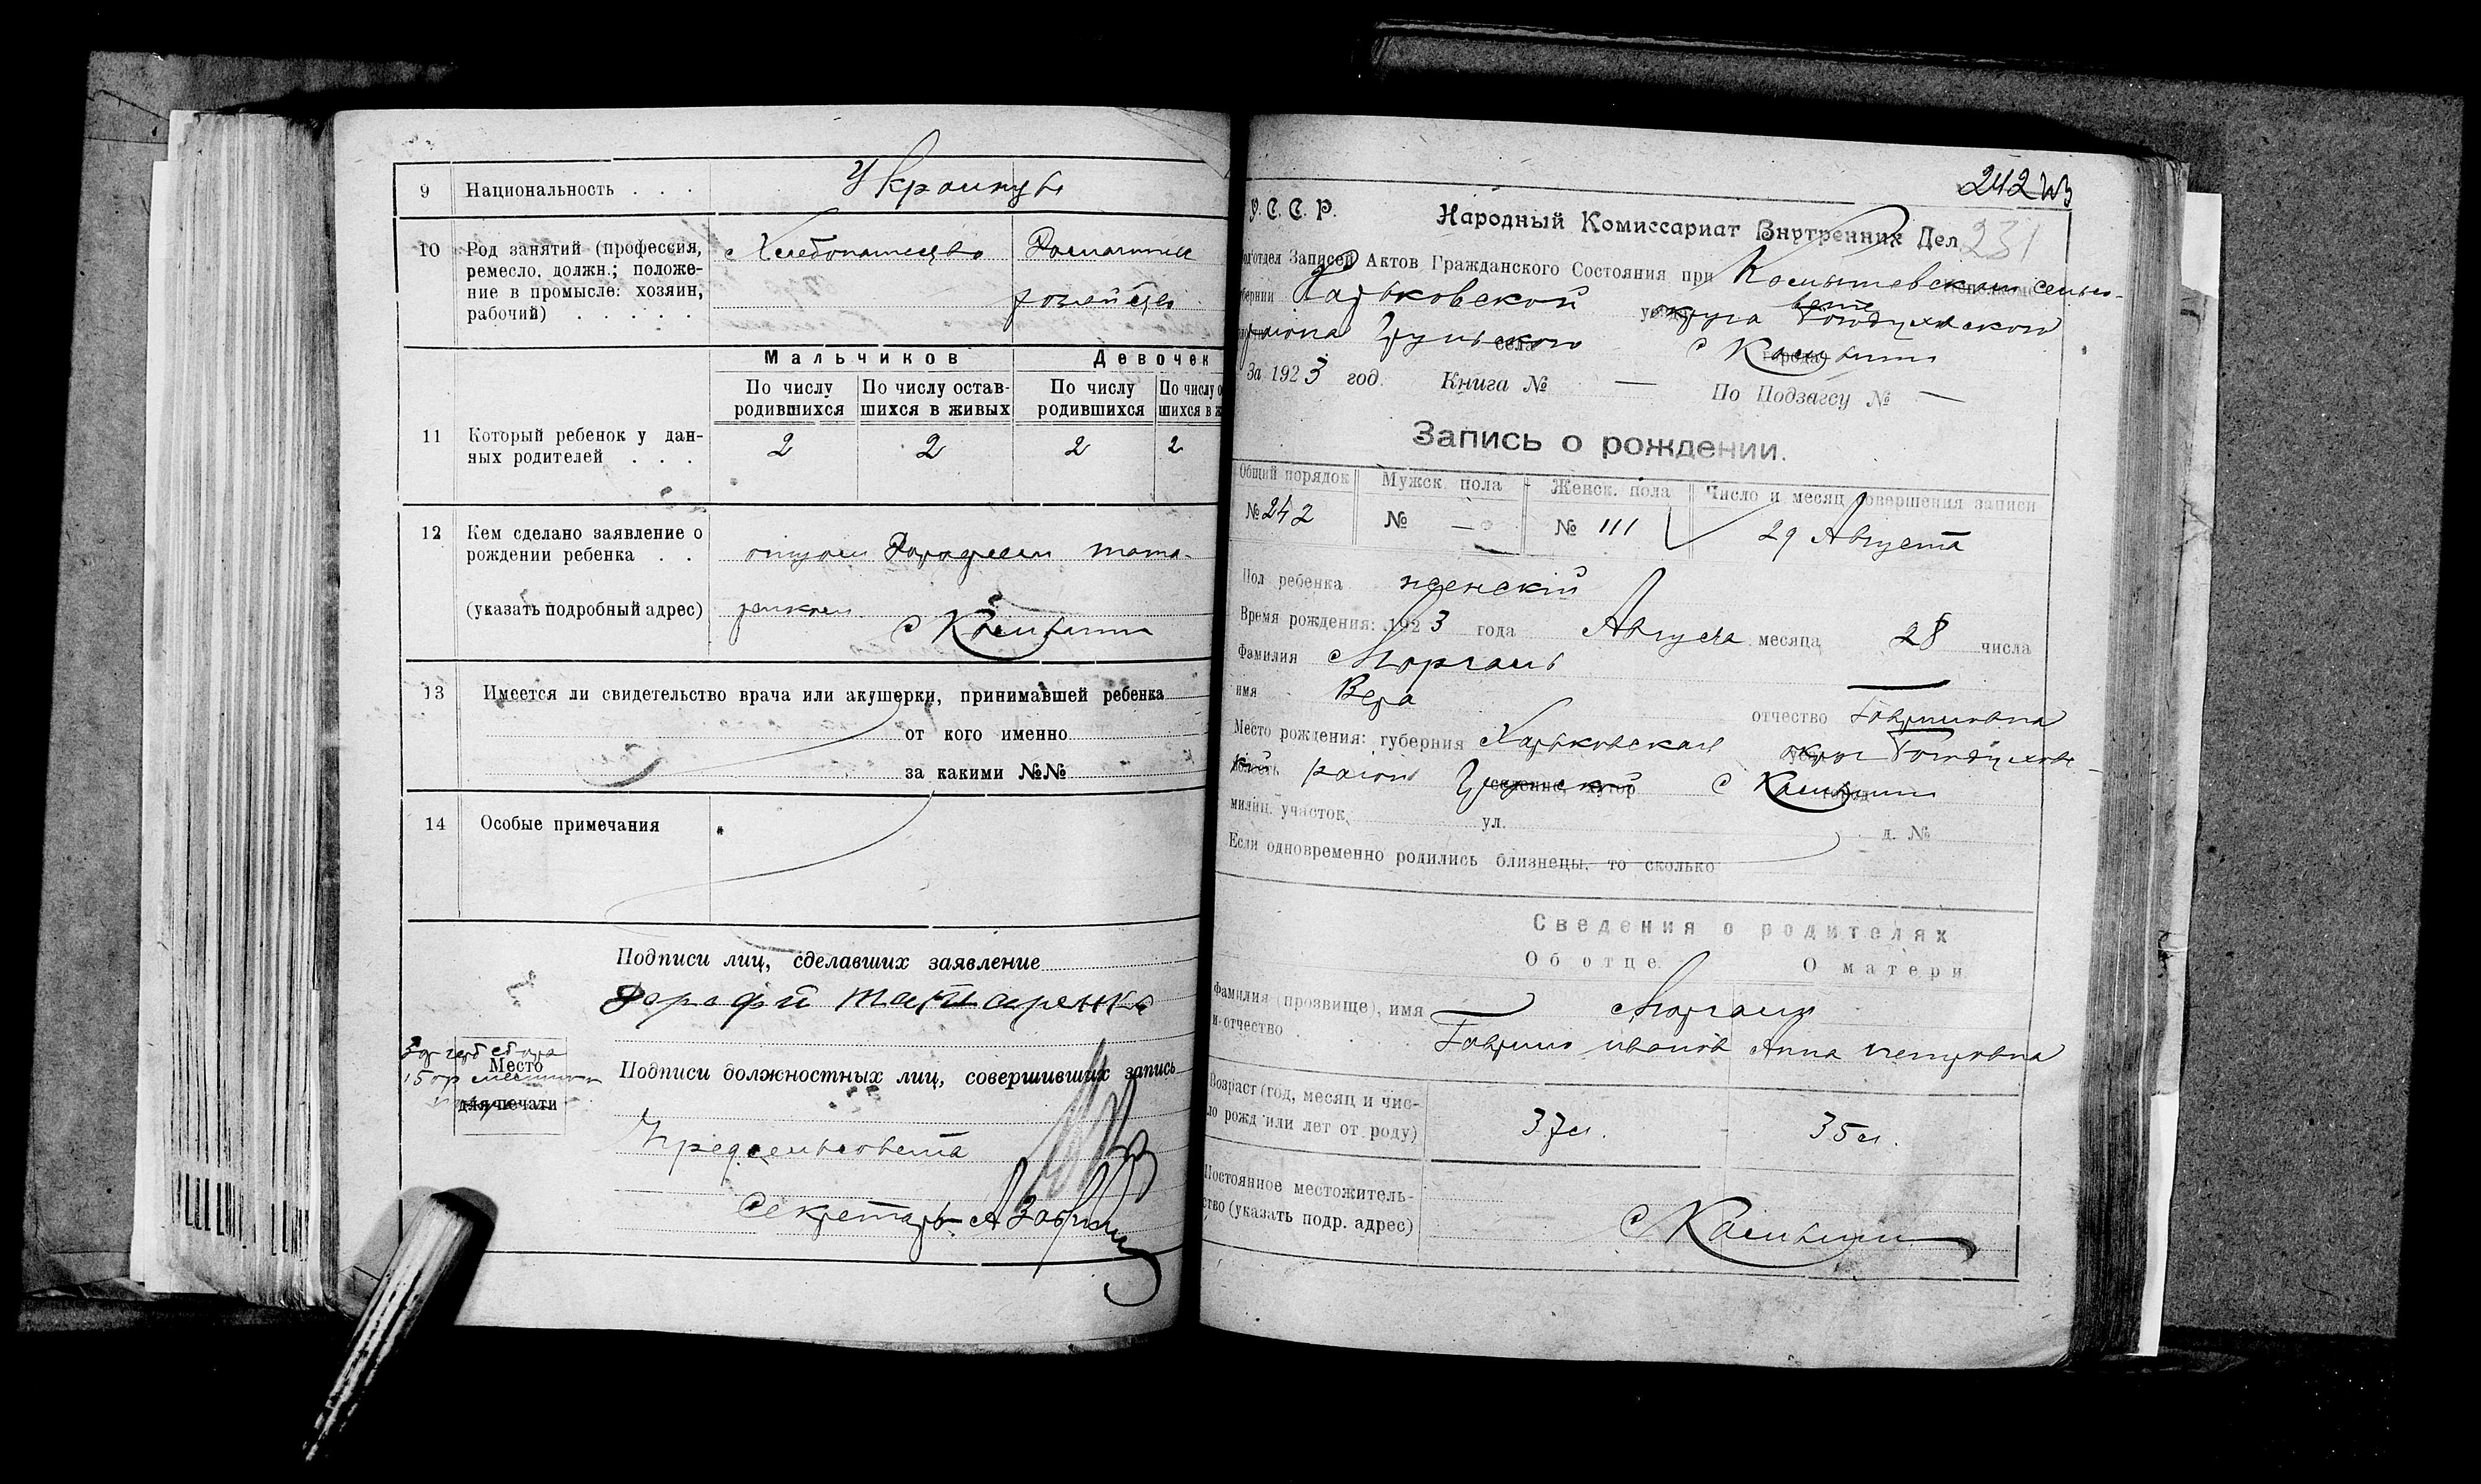 9 Национальность . . . Украинцы
10 Род занятий (профессия, ремесло, должн.; положе-
ние в промысле: хозяин,
рабочий) . . . . .
Хлебопашество
Домашнее
хозяйство
Мальчиков Девочек
По числу родившихся По числу остав-шихся в живых По числу родившихся
11 Который ребенок у дан-
ных родителей . . .
2 2 2 2
12 Кем сделано заявление о
рождении ребенка . .
отцом
(указать подробный адрес)
с Камыши
13 Имеется ли свидетельство врача или акушерки, принимавшей ребенка
от кого именно
за какими №№
14 Особые примечания
Подписи лиц, сделавших заявление
Место
для печати
Подписи должностных лиц, совершивших запись
Предсельсовета
Секретарь
242
231
У. С. С. Р. Народный Комиссариат Внутренних Дел
Записей Актов Гражданского Состояния при Камышевском сельсо-
вете
Харьковской округа Богодуховского
района Грунского с Камыши
За 1923 год. Книга № — По Подзагсу № —
Запись о рождении.
Общий порядок Мужск. пола Женск. пола Число и месяц совершения записи
№ 242 № — № 111 29 Августа
Пол ребенка женскій
Время рождения: 1923 года Августа месяца 28 числа
Фамилия Моргаль
имя Вера отчество Гавриловна
Место рождения: губерния Харьковская округ Богодухов-
кий район Грунский с Камыши
милиц. участок ул. д. №
Если одновременно родились близнецы, то сколько
Сведения о родителях
Об отце О матери
Фамилия (прозвище), имя
и отчество
Гаврило Иванов Анна Петровна
Возраст (год, месяц и чис-
ло рожд или лет от роду)
37 л. 35 л.
Постоянное местожитель-
ство (указать подр. адрес)
с Камыши